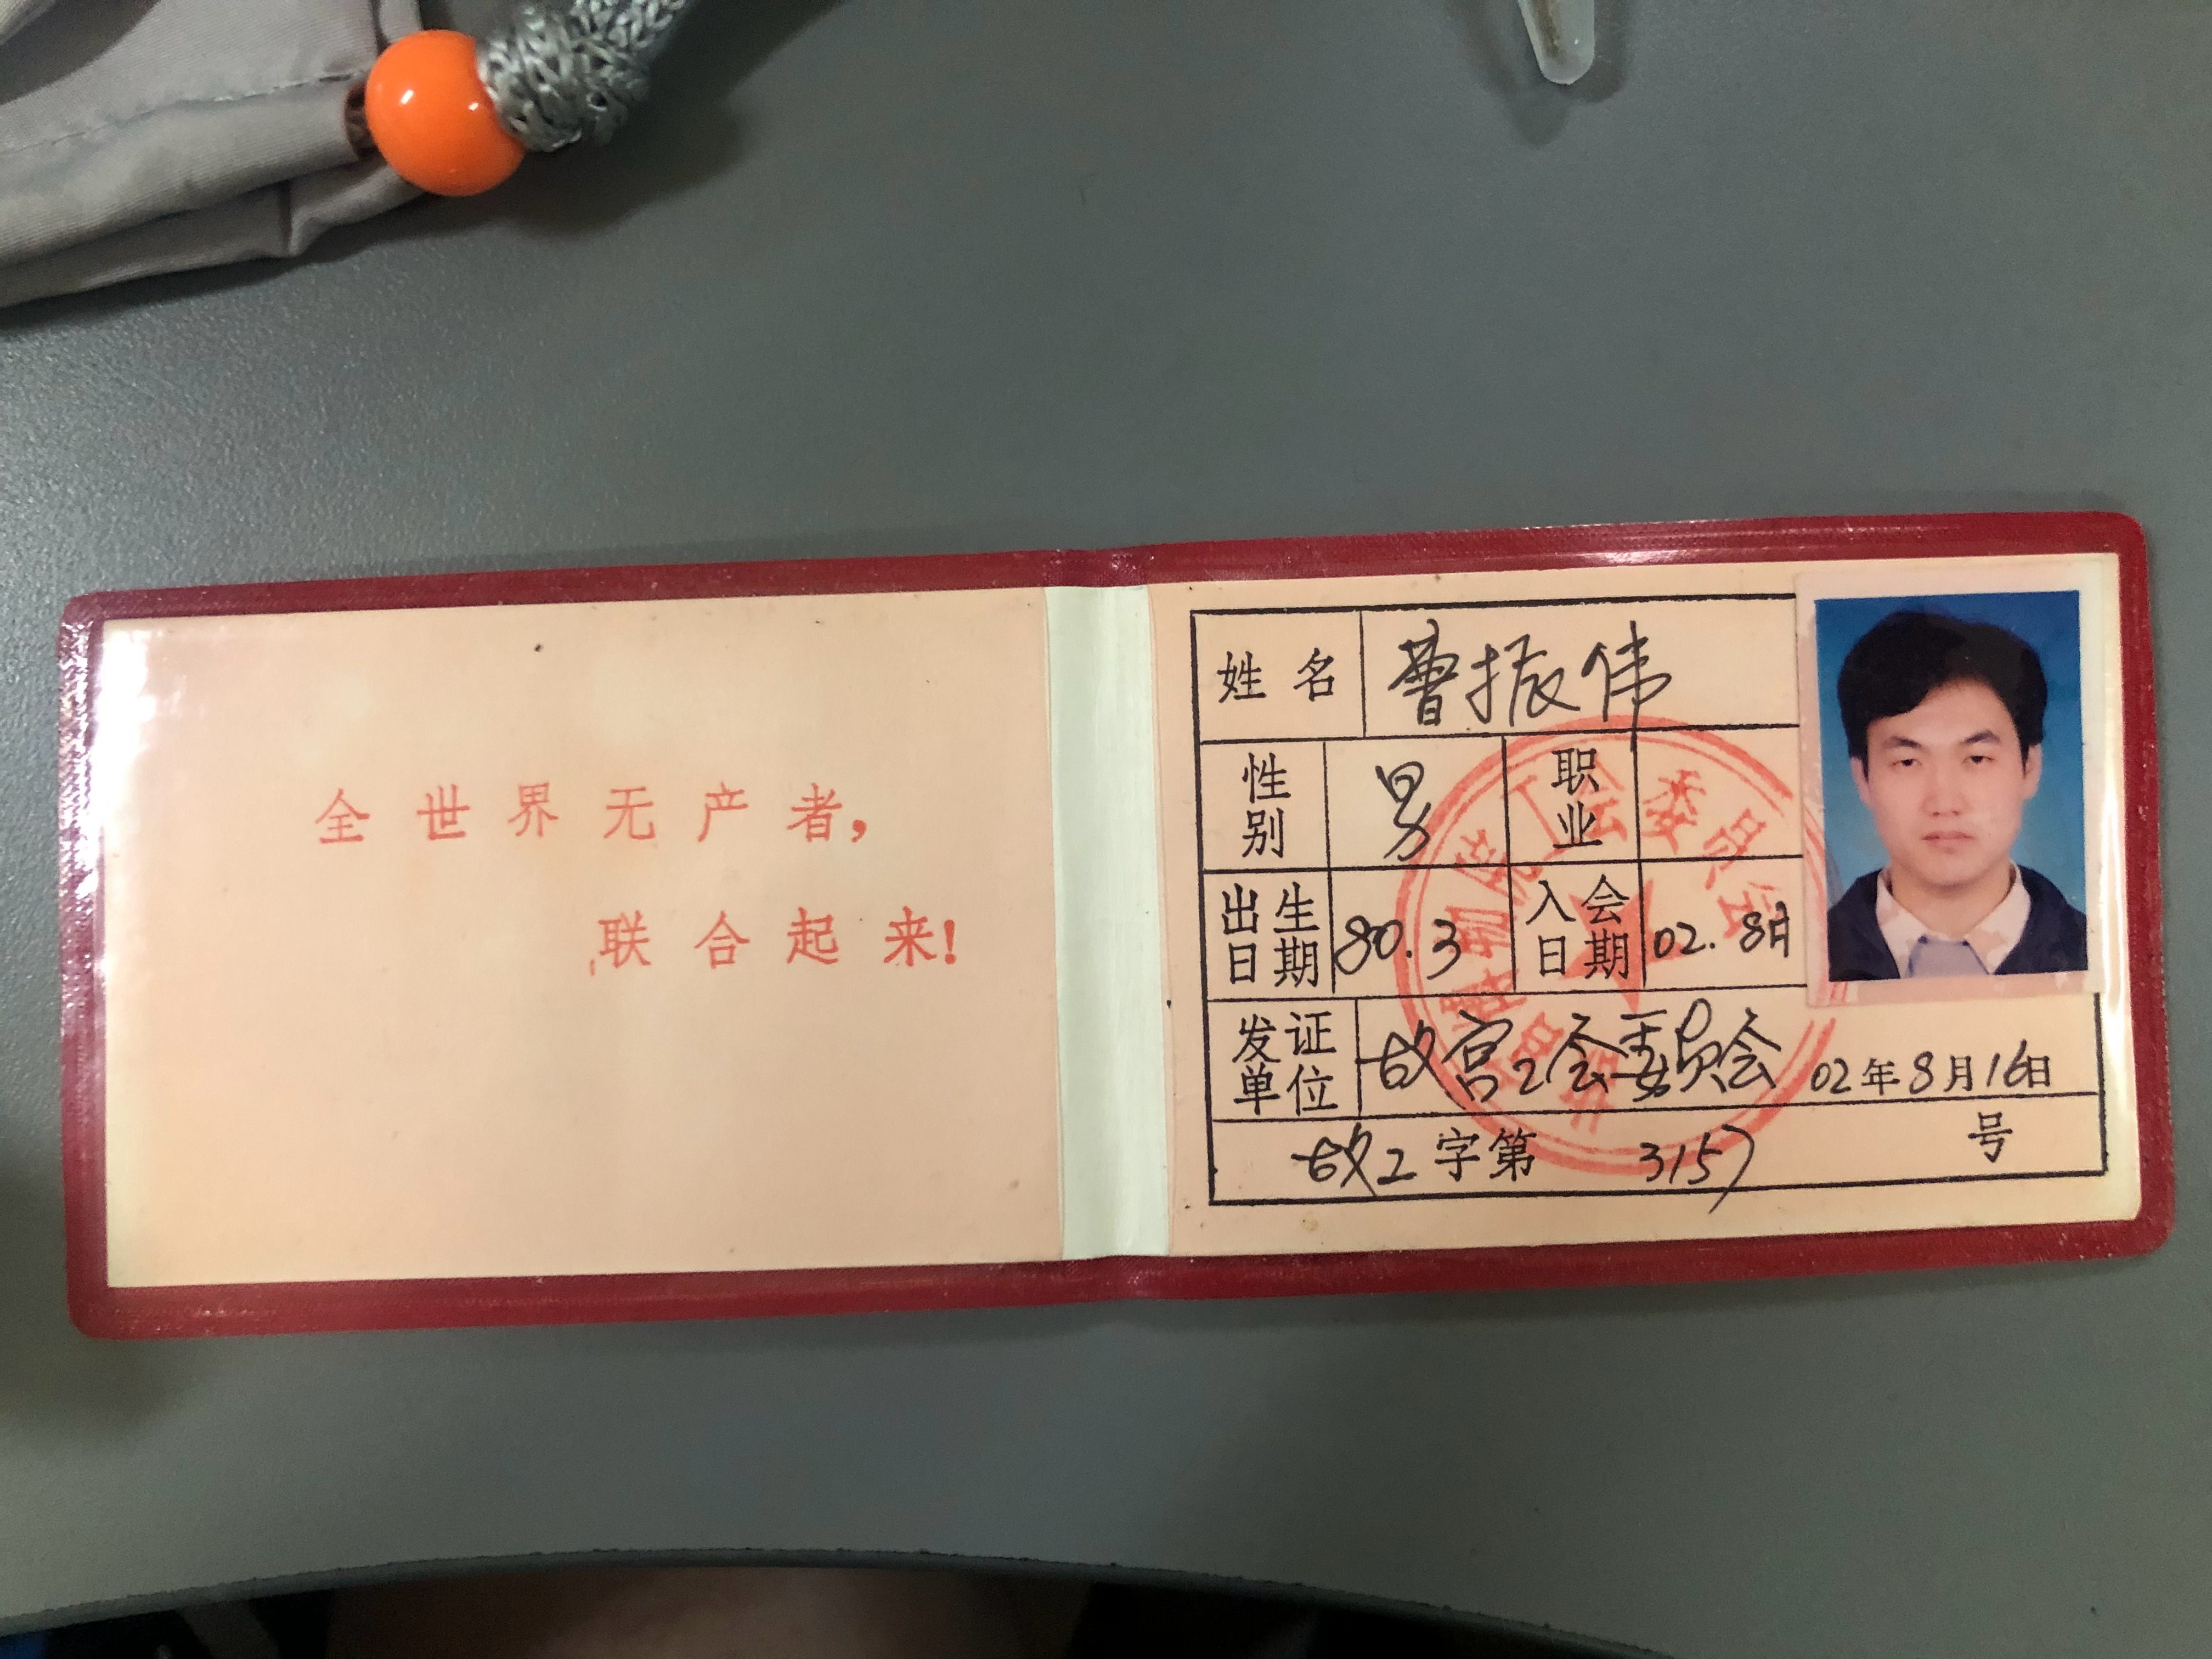 全世界无产者,
联合起来!
姓名 曹振伟
性别 男 职业
出生日期 80.3 入会日期 02.8月
发证单位 故宫工会委员会 02年8月16日
故工字第 3157 号
工会委员会